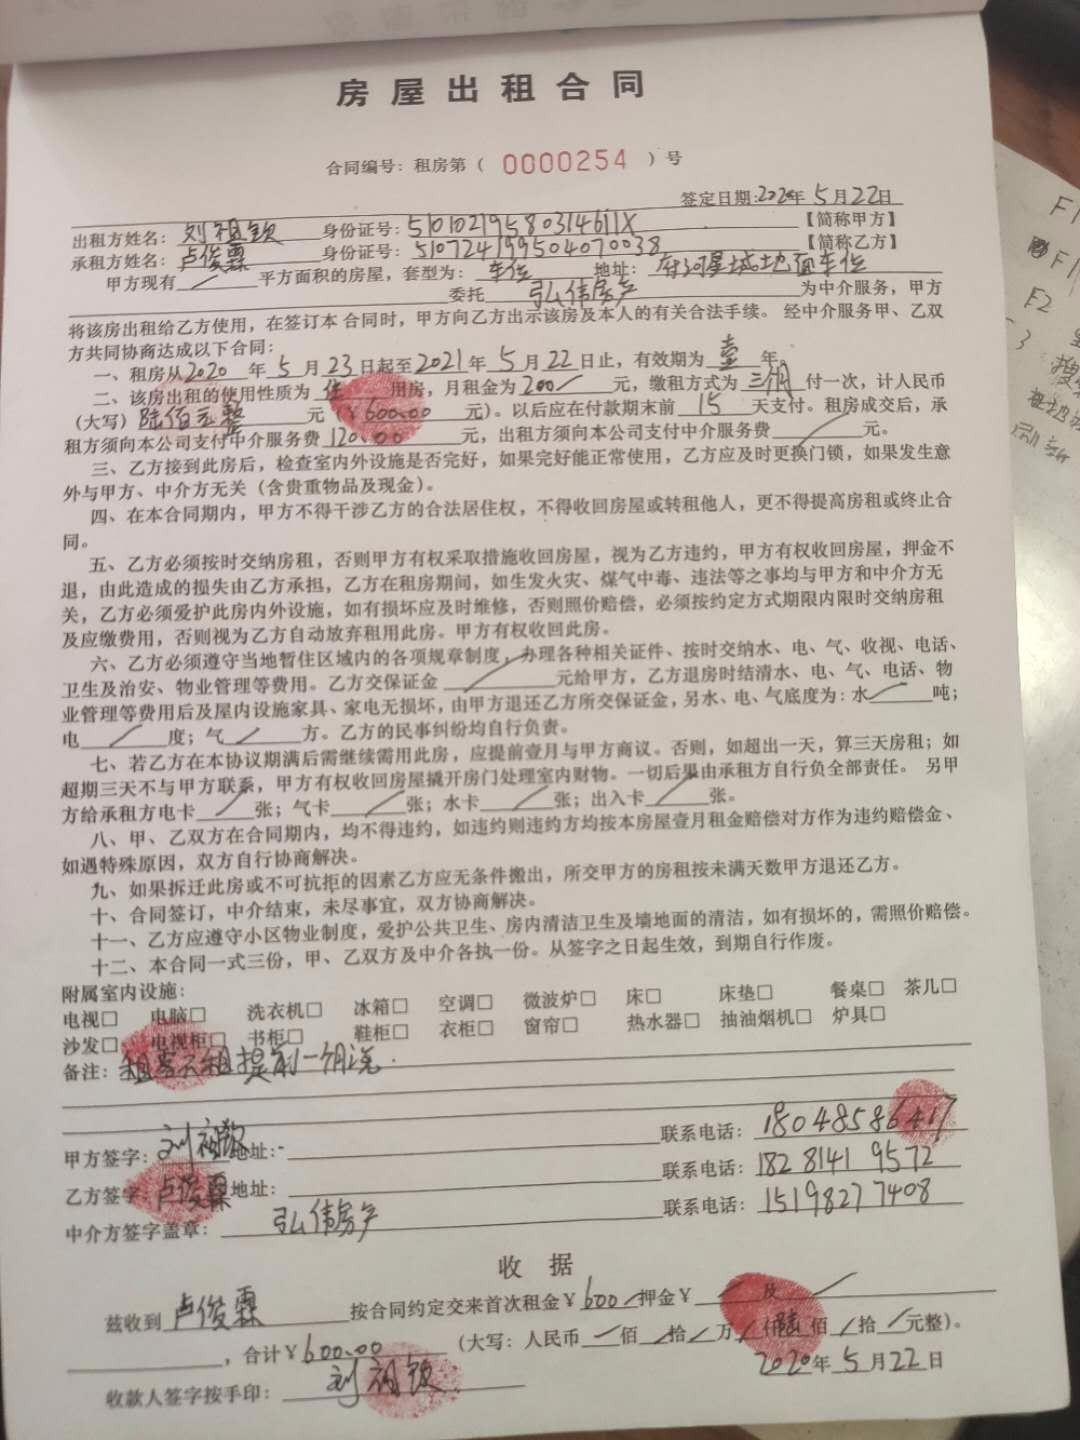 房屋出租合同
合同编号：租房第（ 0000254 ）号
签定日期:2020年 5月22日
出租方姓名： 刘祖钦 身份证号：51010219580314611X 【简称甲方】
承租方姓名： 卢俊霖 身份证号：510724199504070038 【简称乙方】
甲方现有 / 平方面积的房屋，套型为： 车位 地址： 府河星城地面车位
委托 弘伟房产 为中介服务，甲方
将该房出租给乙方使用，在签订本 合同时，甲方向乙方出示该房及本人的有关合法手续。 经中介服务甲、乙双
方共同协商达成以下合同：
一、租房从2020 年 5 月 23 日起至2021年 5 月 22 日止，有效期为 壹 年。
二、该房出租的使用性质为 住 用房，月租金为200/ 元，缴租方式为 三个月 付一次，计人民币
（大写）陆佰元整 元（￥600.00 元）。以后应在付款期末前 15 天支付。租房成交后，承
租方须向本公司支付中介服务费 120.00 元，出租方须向本公司支付中介服务费 / 元。
三、乙方接到此房后，检查室内外设施是否完好，如果完好能正常使用，乙方应及时更换门锁，如果发生意
外与甲方、中介方无关（含贵重物品及现金）。
四、在本合同期内，甲方不得干涉乙方的合法居住权，不得收回房屋或转租他人，更不得提高房租或终止合
同。
五、乙方必须按时交纳房租，否则甲方有权采取措施收回房屋，视为乙方违约，甲方有权收回房屋，押金不
退，由此造成的损失由乙方承担，乙方在租房期间，如生发火灾、煤气中毒、违法等之事均与甲方和中介方无
关，乙方必须爱护此房内外设施，如有损坏应及时维修，否则照价赔偿，必须按约定方式期限内限时交纳房租
及应缴费用，否则视为乙方自动放弃租用此房。甲方有权收回此房。
六、乙方必须遵守当地暂住区域内的各项规章制度，办理各种相关证件、按时交纳水、电、气、收视、电话、
卫生及治安、物业管理等费用。乙方交保证金 / 元给甲方，乙方退房时结清水、电、气、电话、物
业管理等费用后及屋内设施家具、家电无损坏，由甲方退还乙方所交保证金，另水、电、气底度为：水 / 吨；
电 / 度；气 / 方。乙方的民事纠纷均自行负责。
七、若乙方在本协议期满后需继续需用此房，应提前壹月与甲方商议。否则，如超出一天，算三天房租；如
超期三天不与甲方联系，甲方有权收回房屋撬开房门处理室内财物。一切后果由承租方自行负全部责任。 另甲
方给承租方电卡 / 张；气卡 / 张；水卡 / 张；出入卡 / 张。
八、甲、乙双方在合同期内，均不得违约，如违约则违约方均按本房屋壹月租金赔偿对方作为违约赔偿金、
如遇特殊原因，双方自行协商解决。
九、如果拆迁此房或不可抗拒的因素乙方应无条件搬出，所交甲方的房租按未满天数甲方退还乙方。
十、合同签订，中介结束，未尽事宜，双方协商解决。
十一、乙方应遵守小区物业制度，爱护公共卫生、房内清洁卫生及墙地面的清洁，如有损坏的，需照价赔偿。
十二、本合同一式三份，甲、乙双方及中介各执一份。从签字之日起生效，到期自行作废。
附属室内设施：
电视□ 电脑□ 洗衣机□ 冰箱□ 空调□ 微波炉□ 床□ 床垫□ 餐桌□ 茶几□
沙发□ 电视柜□ 书柜□ 鞋柜□ 衣柜□ 窗帘□ 热水器□ 抽油烟机□ 炉具□
备注：租客不租提前一个月说.
甲方签字： 刘祖钦 地址： 联系电话： 18048586417
乙方签字： 卢俊霖 地址： 联系电话： 18281419572
中介方签字盖章： 弘伟房产 联系电话： 15198277408
收 据
兹收到 卢俊霖 按合同约定交来首次租金￥600/押金￥ / 及 /
，合计￥600.00 （大写：人民币 / 佰 / 拾 / 万 / 仟陆佰 / 拾 / 元整）。
收款人签字按手印： 刘祖钦 2020年 5 月 22 日
F1
F1
F2
3